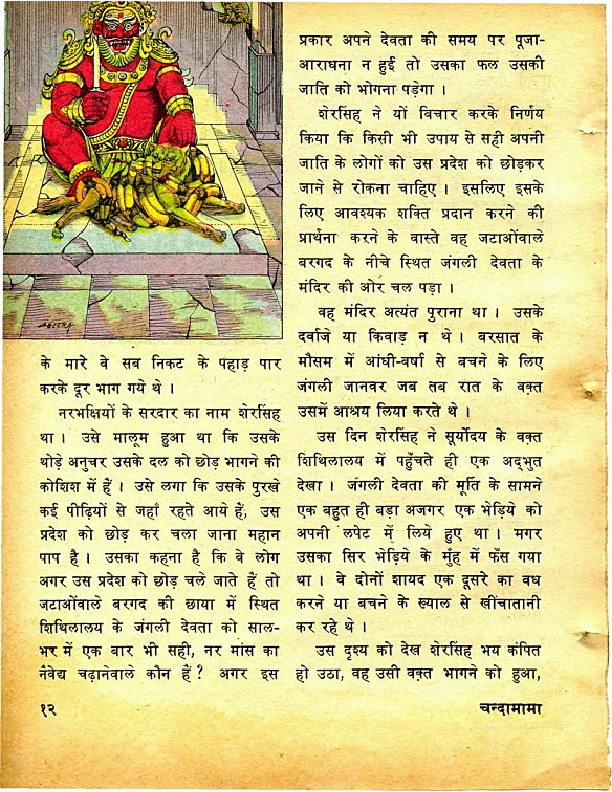 के मारे वे सब निकट के पहाड़ पार
करके दूर भाग गये थे ।
नरभक्षियों के सरदार का नाम शेरसिंह
था । उसे मालूम हुआ था कि उसके
थोड़े अनुचर उसके दल को छोड़ भागने की
कोशिश में हैं । उसे लगा कि उसके पुरखे
कई पीढ़ियों से जहाँ रहते आये हैं, उस
प्रदेश को छोड़ कर चला जाना महान
पाप है । उसका कहना है कि वे लोग
अगर उस प्रदेश को छोड़ चले जाते हैं तो
जटाओंवाले बरगद की छाया में स्थित
शिथिलालय के जंगली देवता को साल-
भर में एक बार भी सही, नर मांस का
नैवेद्य चढ़ानेवाले कौन हैं ? अगर इस
प्रकार अपने देवता की समय पर पूजा-
आराधना न हुई तो उसका फल उसकी
जाति को भोगना पड़ेगा ।
शेरसिंह ने यों विचार करके निर्णय
किया कि किसी भी उपाय से सही अपनी
जाति के लोगों को उस प्रदेश को छोड़कर
जाने से रोकना चाहिए । इसलिए इसके
लिए आवश्यक शक्ति प्रदान करने की
प्रार्थना करने के वास्ते वह जटाओंवाले
बरगद के नीचे स्थित जंगली देवता के
मंदिर की ओर चल पड़ा ।
वह मंदिर अत्यंत पुराना था । उसके
दर्वाजे या किवाड़ न थे । बरसात के
मौसम में आंधी-वर्षा से बचने के लिए
जंगली जानवर जब तब रात के वक़्त
उसमें आश्रय लिया करते थे ।
उस दिन शेरसिंह ने सूर्योदय के वक़्त
शिथिलालय में पहुँचते ही एक अद्भुत
देखा । जंगली देवता की मूर्ति के सामने
एक बहुत ही बड़ा अजगर एक भेड़िये को
अपनी लपेट में लिये हुए था । मगर
उसका सिर भेड़िये के मुँह में फँस गया
था । वे दोनों शायद एक दूसरे का वध
करने या बचने के ख्याल से खींचातानी
कर रहे थे ।
उस दृश्य को देख शेरसिंह भय कंपित
हो उठा, वह उसी वक़्त भागने को हुआ,
१२
चन्दामामा